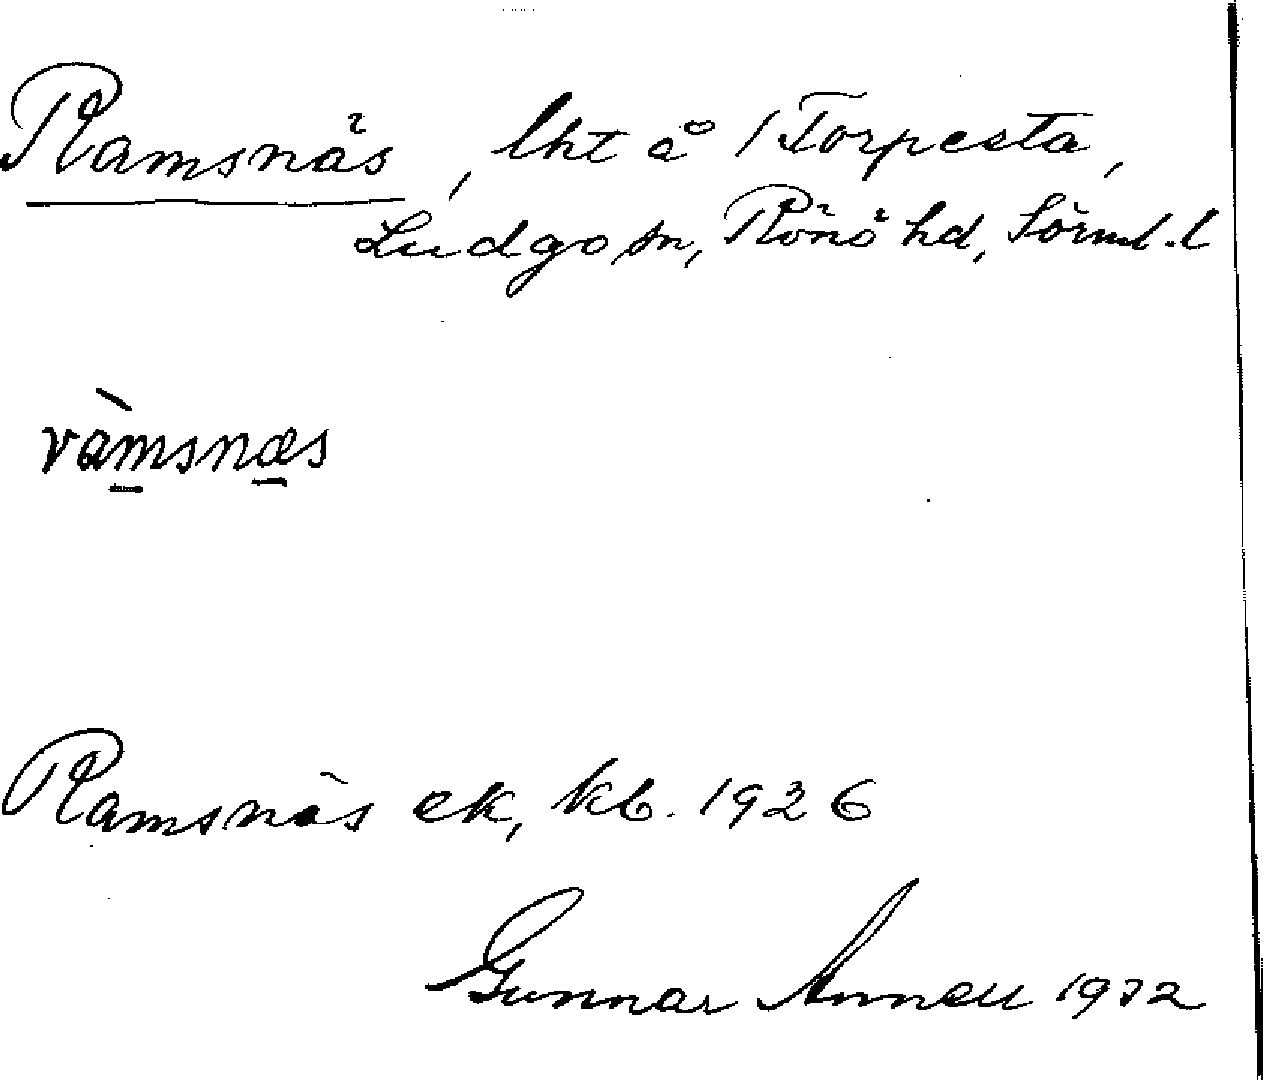 Ramsnäs, lht å 1 Torpesta,
Ludgo sn, Rönö hd, Sörml. l
ràmsnæs
Ramsnäs ek, kb. 1926
Gunnar Annell 1932